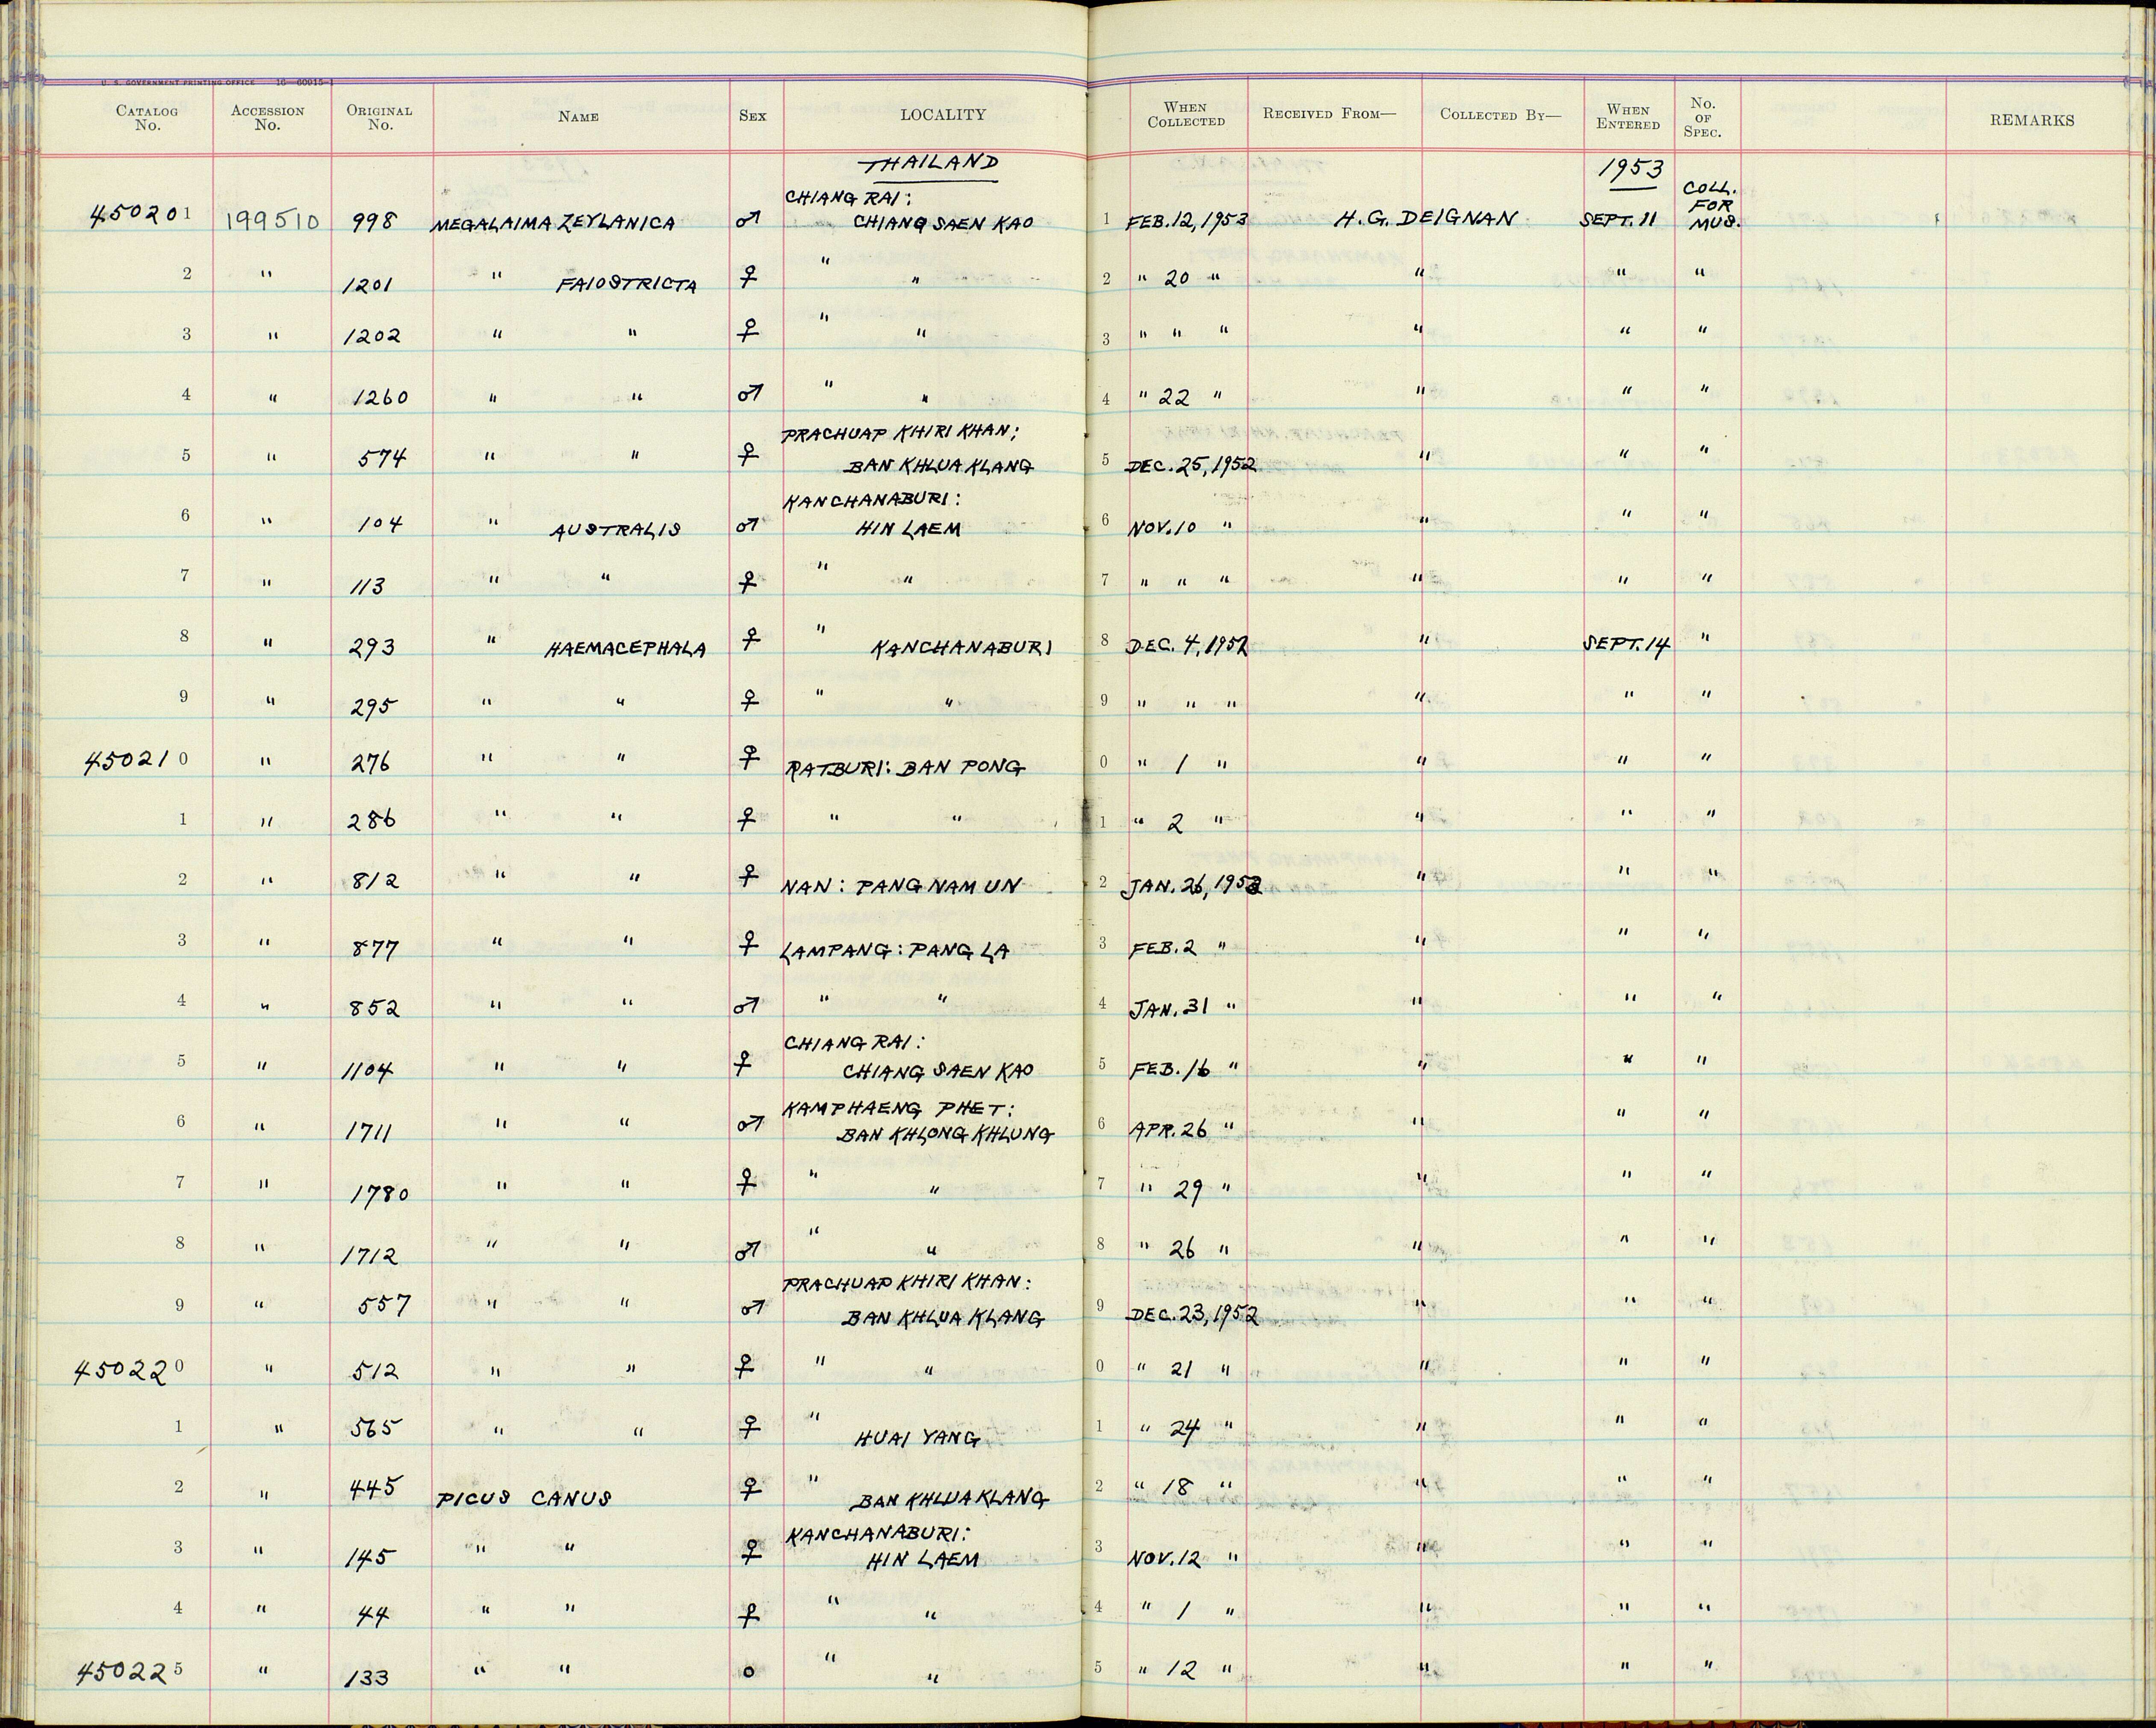 U. S. GOVERNMENT PRINTING OFFICE 16—60915-1
CATALOG No. ACCESSION No. ORIGINAL No. NAME SEX LOCALITY WHEN COLLECTED RECEIVED FROM— COLLECTED BY— WHEN ENTERED No. OF SPEC. REMARKS
THAILAND 1953
CHIANG RAI: COLL. FOR
450201 199510 998 MEGALAIMA ZEYLANICA ♂ CHIANG SAEN KAO 1 FEB. 12, 1953 H. G. DEIGNAN SEPT. 11 MUS.
2 " 1201 " FAIOSTRICTA ♀ " " 2 " 20 " " " "
3 " 1202 " " ♀ " " 3 " " " " " "
4 " 1260 " " ♂ " " 4 " 22 " " " "
PRACHUAP KHIRI KHAN:
5 " 574 " " ♀ BAN KHLUA KLANG 5 DEC. 25, 1952 " " "
KANCHANABURI:
6 " 104 " AUSTRALIS ♂ HIN LAEM 6 NOV. 10 " " " "
7 " 113 " " ♀ " " 7 " " " " " "
8 " 293 " HAEMACEPHALA ♀ " KANCHANABURI 8 DEC. 4, 1952 " SEPT. 14 "
9 " 295 " " ♀ " " 9 " " " " " "
450210 " 276 " " ♀ RATBURI: BAN PONG 0 " 1 " " " "
1 " 286 " " ♀ " " 1 " 2 " " " "
2 " 812 " " ♀ NAN: PANG NAM UN 2 JAN. 26, 1953 " " "
3 " 877 " " ♀ LAMPANG: PANG LA 3 FEB. 2 " " " "
4 " 852 " " ♂ " " 4 JAN. 31 " " " "
CHIANG RAI:
5 " 1104 " " ♀ CHIANG SAEN KAO 5 FEB. 16 " " " "
KAMPHAENG PHET:
6 " 1711 " " ♂ BAN KHLONG KHLUNG 6 APR. 26 " " " "
7 " 1780 " " ♀ " " 7 " 29 " " " "
8 " 1712 " " ♂ " " 8 " 26 " " " "
PRACHUAP KHIRI KHAN:
9 " 557 " " ♂ BAN KHLUA KLANG 9 DEC. 23, 1952 " " "
450220 " 512 " " ♀ " " 0 " 21 " " " "
1 " 565 " " ♀ " HUAI YANG 1 " 24 " " " "
2 " 445 PICUS CANUS ♀ " BAN KHLUA KLANG 2 " 18 " " " "
KANCHANABURI:
3 " 145 " " ♀ HIN LAEM 3 NOV. 12 " " " "
4 " 44 " " ♀ " " 4 " 1 " " " "
450225 " 133 " " o " " 5 " 12 " " " "